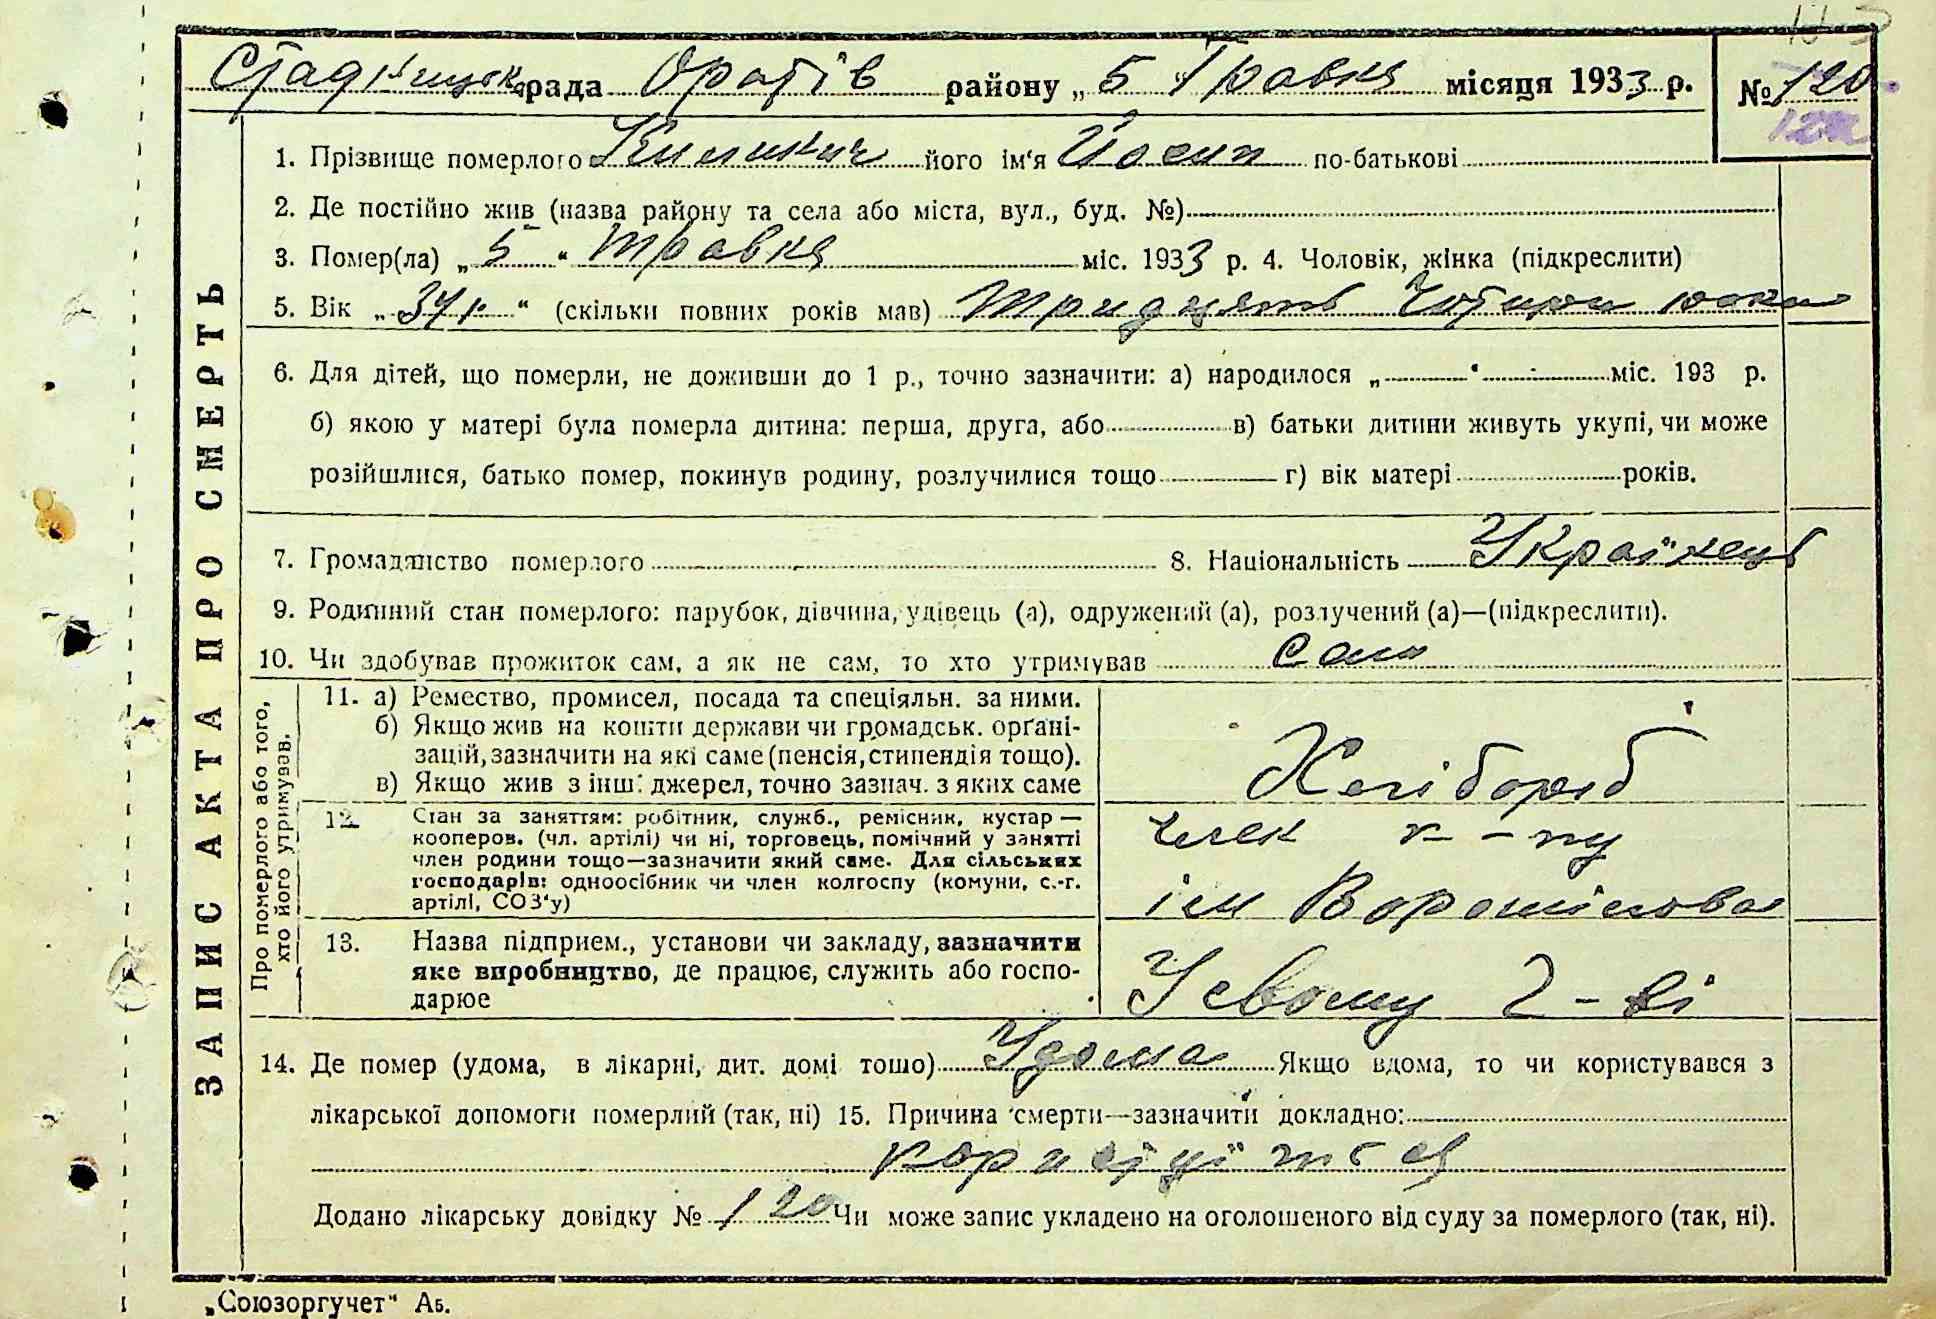 Стадницьк рада Оратів району „5“ Травня місяця 1933 р. № 120
1. Прізвище померлого його ім'я Йосип по-батькові
2. Де постійно жив (назва району та села або міста, вул., буд. №)
3. Помер(ла) „5“ травня міс. 1933 р. 4. Чоловік, жінка (підкреслити)
5. Вік „34 р.“ (скільки повних років мав) тридцять чотири роки
6. Для дітей, що померли, не доживши до 1 р., точно зазначити: а) народилося „ “ міс. 193 р.
б) якою у матері була померла дитина: перша, друга, або в) батьки дитини живуть укупі, чи може
розійшлися, батько помер, покинув родину, розлучилися тощо г) вік матері років.
7. Громадянство померлого 8. Національність Українець
9. Родинний стан померлого: парубок, дівчина, удівець (а), одружений (а), розлучений (а)—(підкреслити).
10. Чи здобував прожиток сам, а як не сам, то хто утримував сам
Про померлого або того, хто його утримував.
11. а) Ремество, промисел, посада та спеціяльн. за ними.
б) Якщо жив на кошти держави чи громадськ. орґані-
зацій, зазначити на які саме (пенсія, стипендія тощо).
в) Якщо жив з інш. джерел, точно зазнач. з яких саме
Хлібороб
12. Стан за заняттям: робітник, служб., ремісник, кустар —
кооперов. (чл. артілі) чи ні, торговець, помічний у занятті
член родини тощо—зазначити який саме. Для сільських
господарів: одноосібник чи член колгоспу (комуни, с.-г.
артілі, СОЗ'у)
член к-пу
ім Ворошілова
13. Назва підприєм., установи чи закладу, зазначити
яке виробництво, де працює, служить або госпо-
дарює
У свому 2-ві
14. Де помер (удома, в лікарні, дит. домі тощо) Удома Якщо вдома, то чи користувався з
лікарської допомоги померлий (так, ні) 15. Причина смерти—зазначити докладно:
Додано лікарську довідку № 120 Чи може запис укладено на оголошеного від суду за померлого (так, ні).
ЗАПИС АКТА ПРО СМЕРТЬ
„Союзоргучет“ Аб.